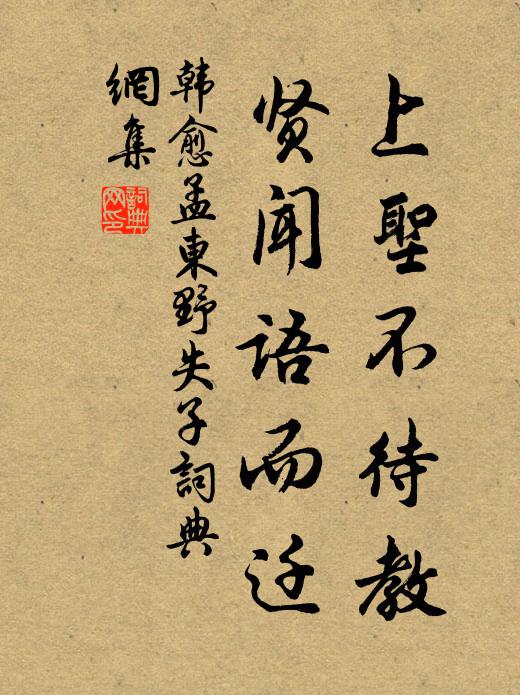 上聖不待教
贤闻語而迁
韩愈孟東野失子詞典
網集
詞典
网印